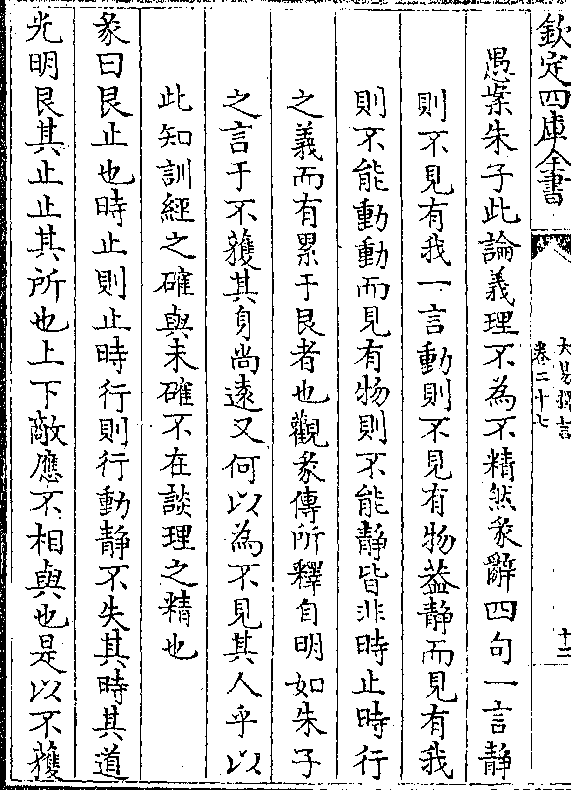 欽定四庫全書
大易擇言
卷二十七
十二
愚案朱子此論義理不為不精然彖辭四句一言靜
則不見有我一言動則不見有物葢靜而見有我
則不能動動而見有物則不能靜皆非時止時行
之義而有累于艮者也觀彖傳所釋自明如朱子
之言于不獲其身尚遠又何以為不見其人乎以
此知訓經之確與未確不在談理之精也
彖曰艮止也時止則止時行則行動靜不失其時其道
光明艮其止止其所也上下敵應不相與也是以不獲